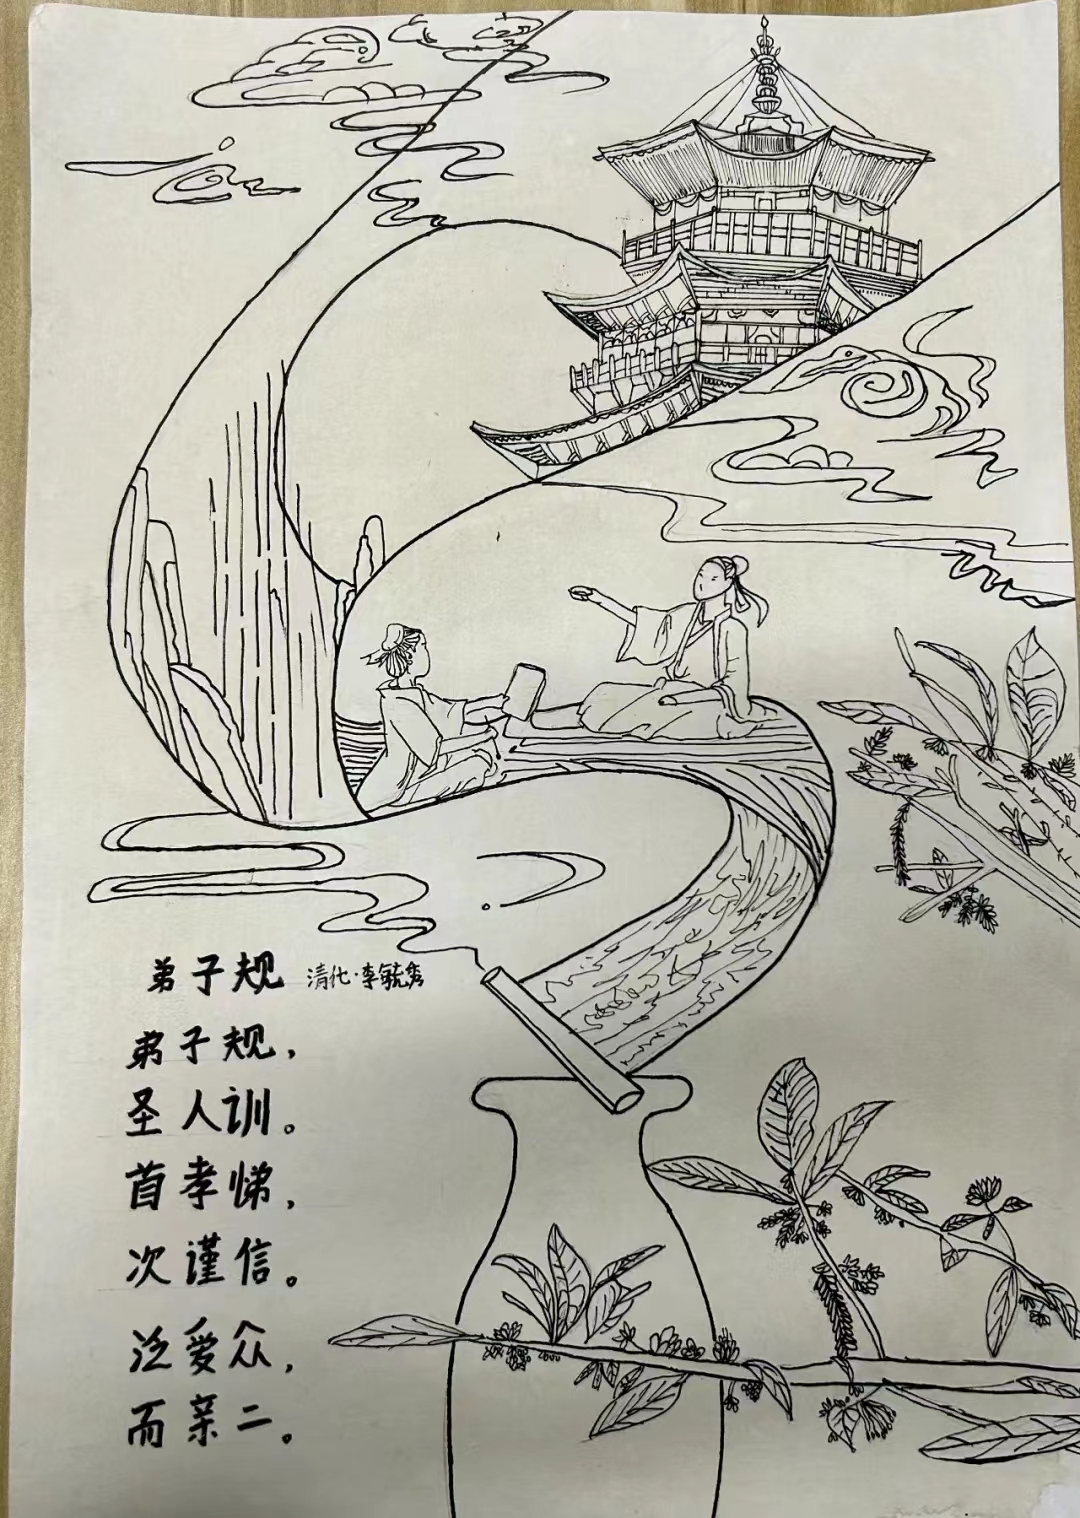 弟子规 清化·李毓秀
弟子规，
圣人训。
首孝悌，
次谨信。
泛爱众，
而亲二。